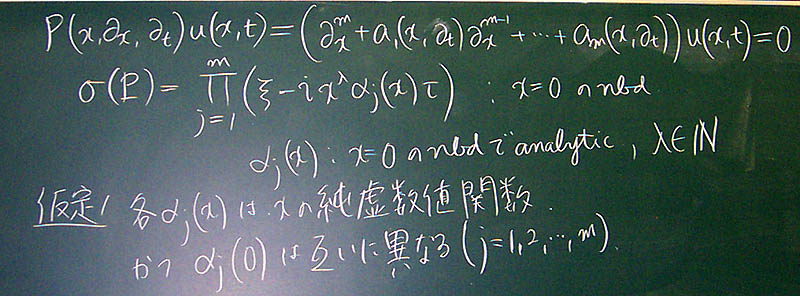 P(x,∂x,∂t)u(x,t)=(∂x^m+a₁(x,∂t)∂x^{m-1}+…+a_m(x,∂t))u(x,t)=0
σ(P)=∏_{j=1}^{m}(ξ-ix^λα_j(x)τ) : x=0 の nbd
α_j(x) : x=0 の nbd で analytic, λ∈ℕ
仮定1 各α_j(x)は xの純虚数値関数.
かつ α_j(0)は互いに異なる(j=1,2,…,m).